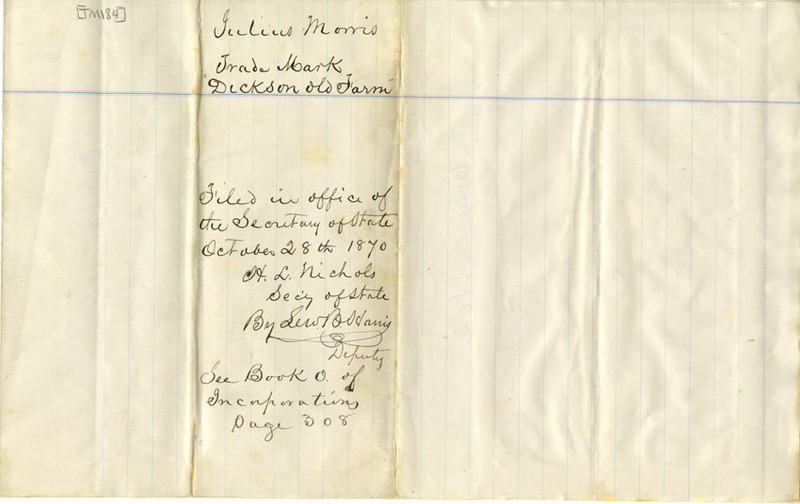 [TM184]
Julius Morris
Trade Mark
"Dickson Old Farm"
Filed in office of
the Secretary of State
October 28th 1870
H. L. Nichols
Secy of State
By Lew B Harris
Deputy
See Book O. of
Incorporations
Page 308